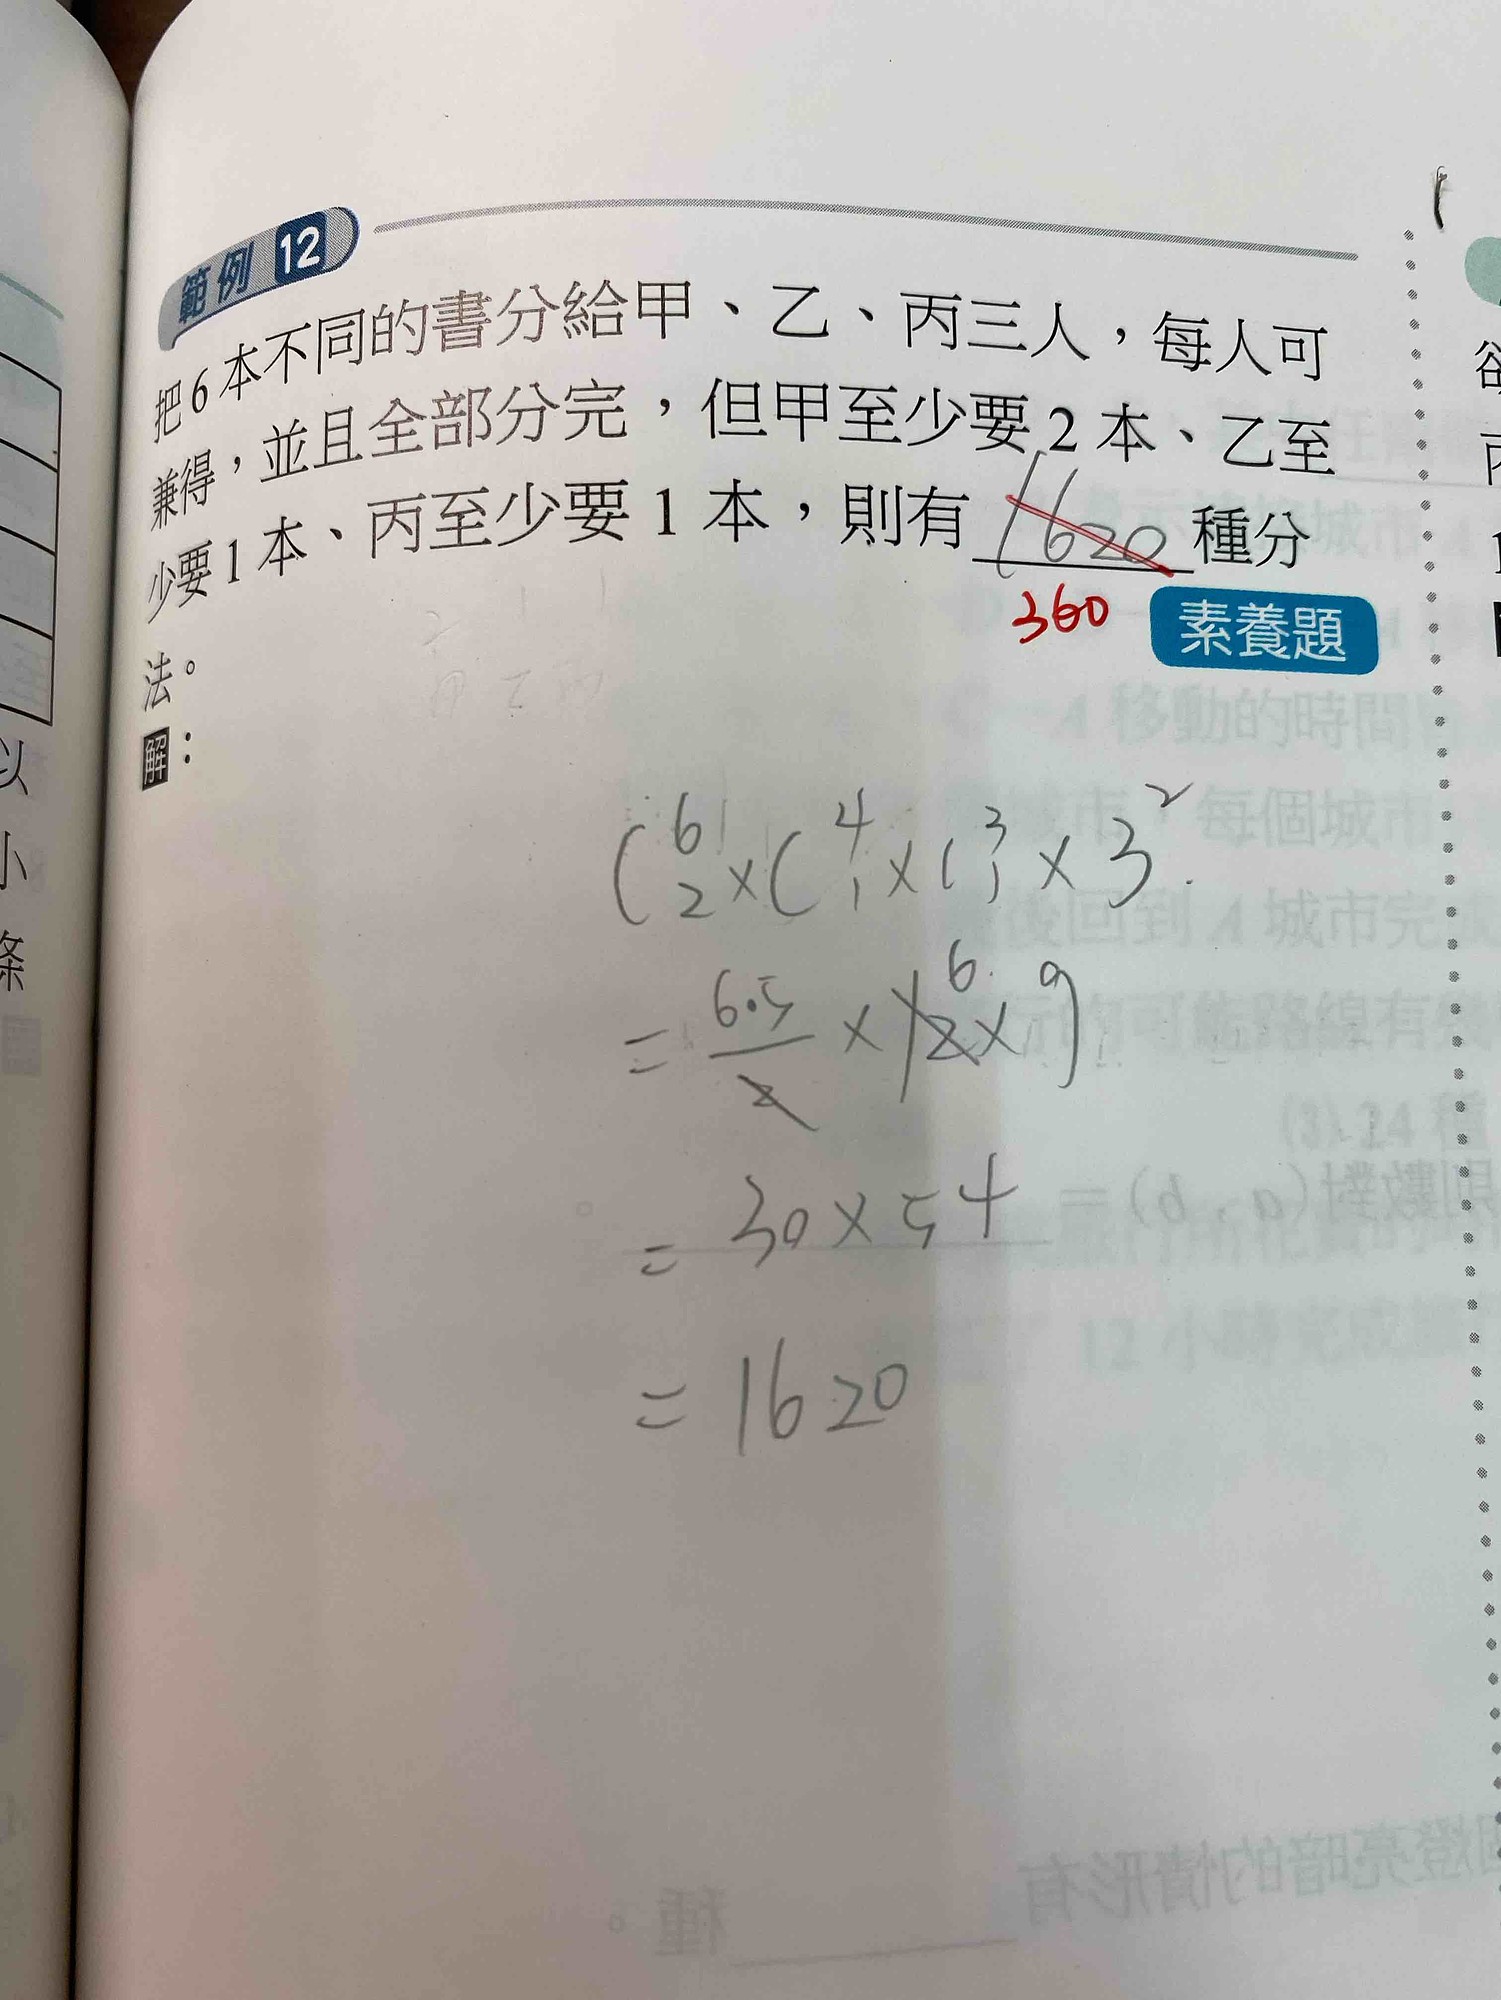 範例 12
把6本不同的書分給甲、乙、丙三人，每人可
兼得，並且全部分完，但甲至少要2本、乙至
少要1本、丙至少要1本，則有 1620 種分
360
素養題
法。
解：
2 1 1
甲 乙 丙
C 6 2 × C 4 1 × C 3 1 × 3²
= 6·5 / 2 × 12 6 × 9
= 30 × 54
= 1620
以
小
條